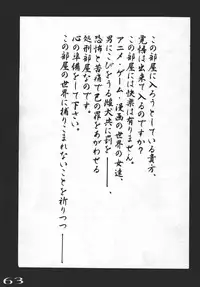 この部屋に入ろうとしている貴方、
覚悟は出来て入るのですか?
この部屋には快楽は有りません。
アニメ・ゲーム・漫画の世界の女達、
男にこびをうる雌犬共に罰を━━━、
恐怖と苦痛で己の罪をあがわせる
処刑部屋なのです。
心の準備をして下さい。
この部屋の世界に捕りこまれないことを祈りつつ━━━
63